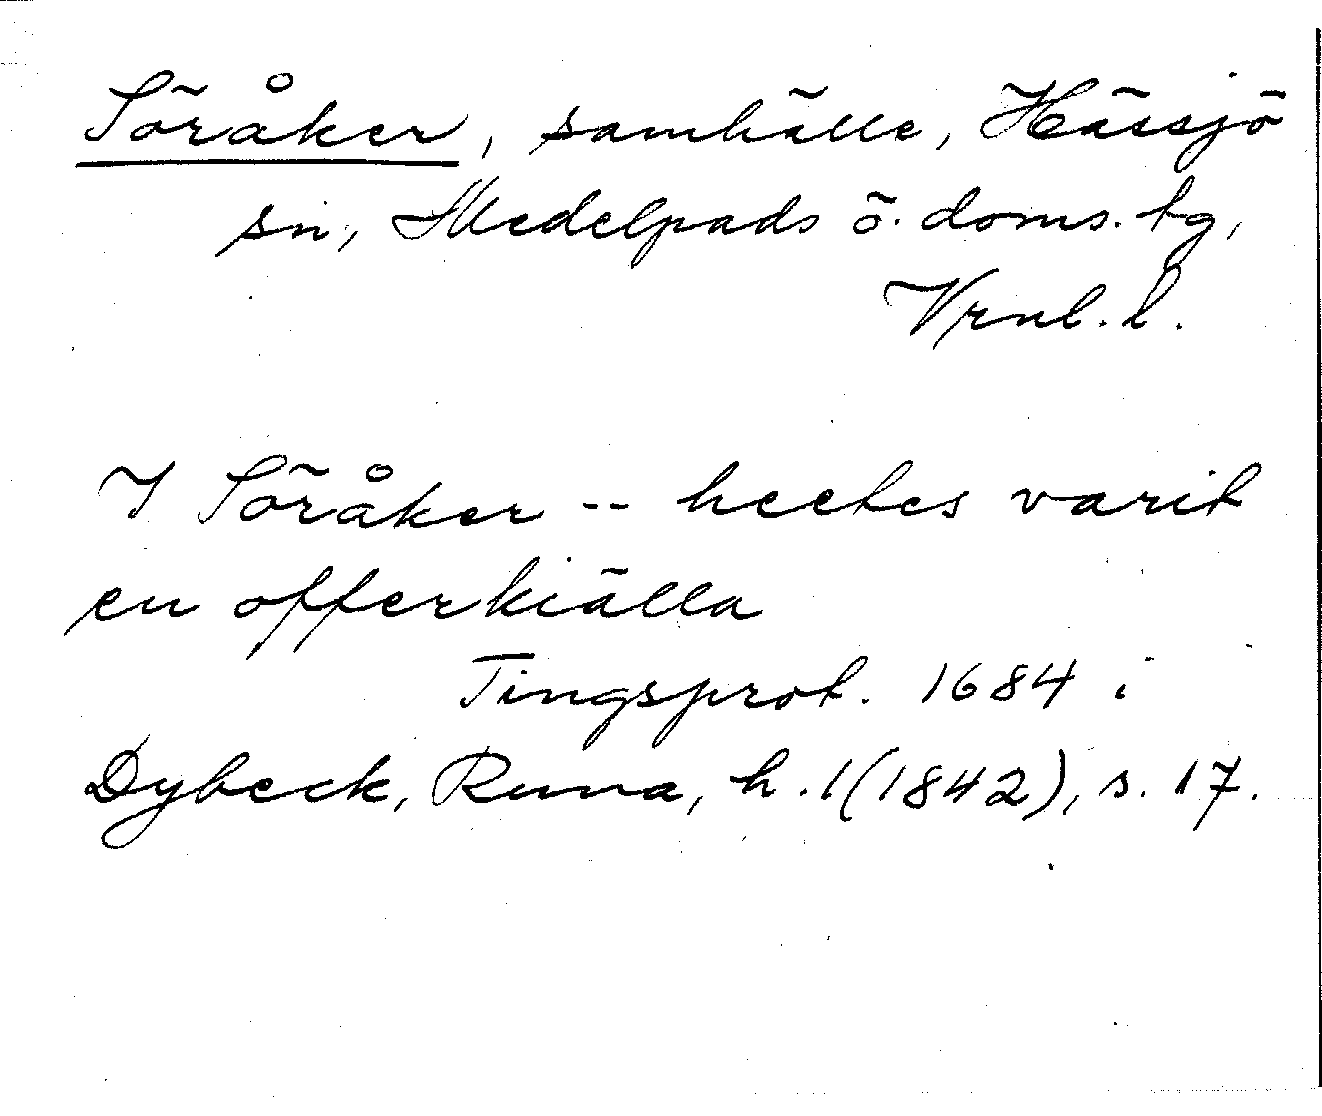 Söråker, samhälle, Hässjö
sn, Medelpads ö. doms. tg,
Vrnl. l.
I Söråker -- heetes varit
en offerkiälla
Tingsprot. 1684 i
Dybeck, Runa, h. 1 (1842), s. 17.